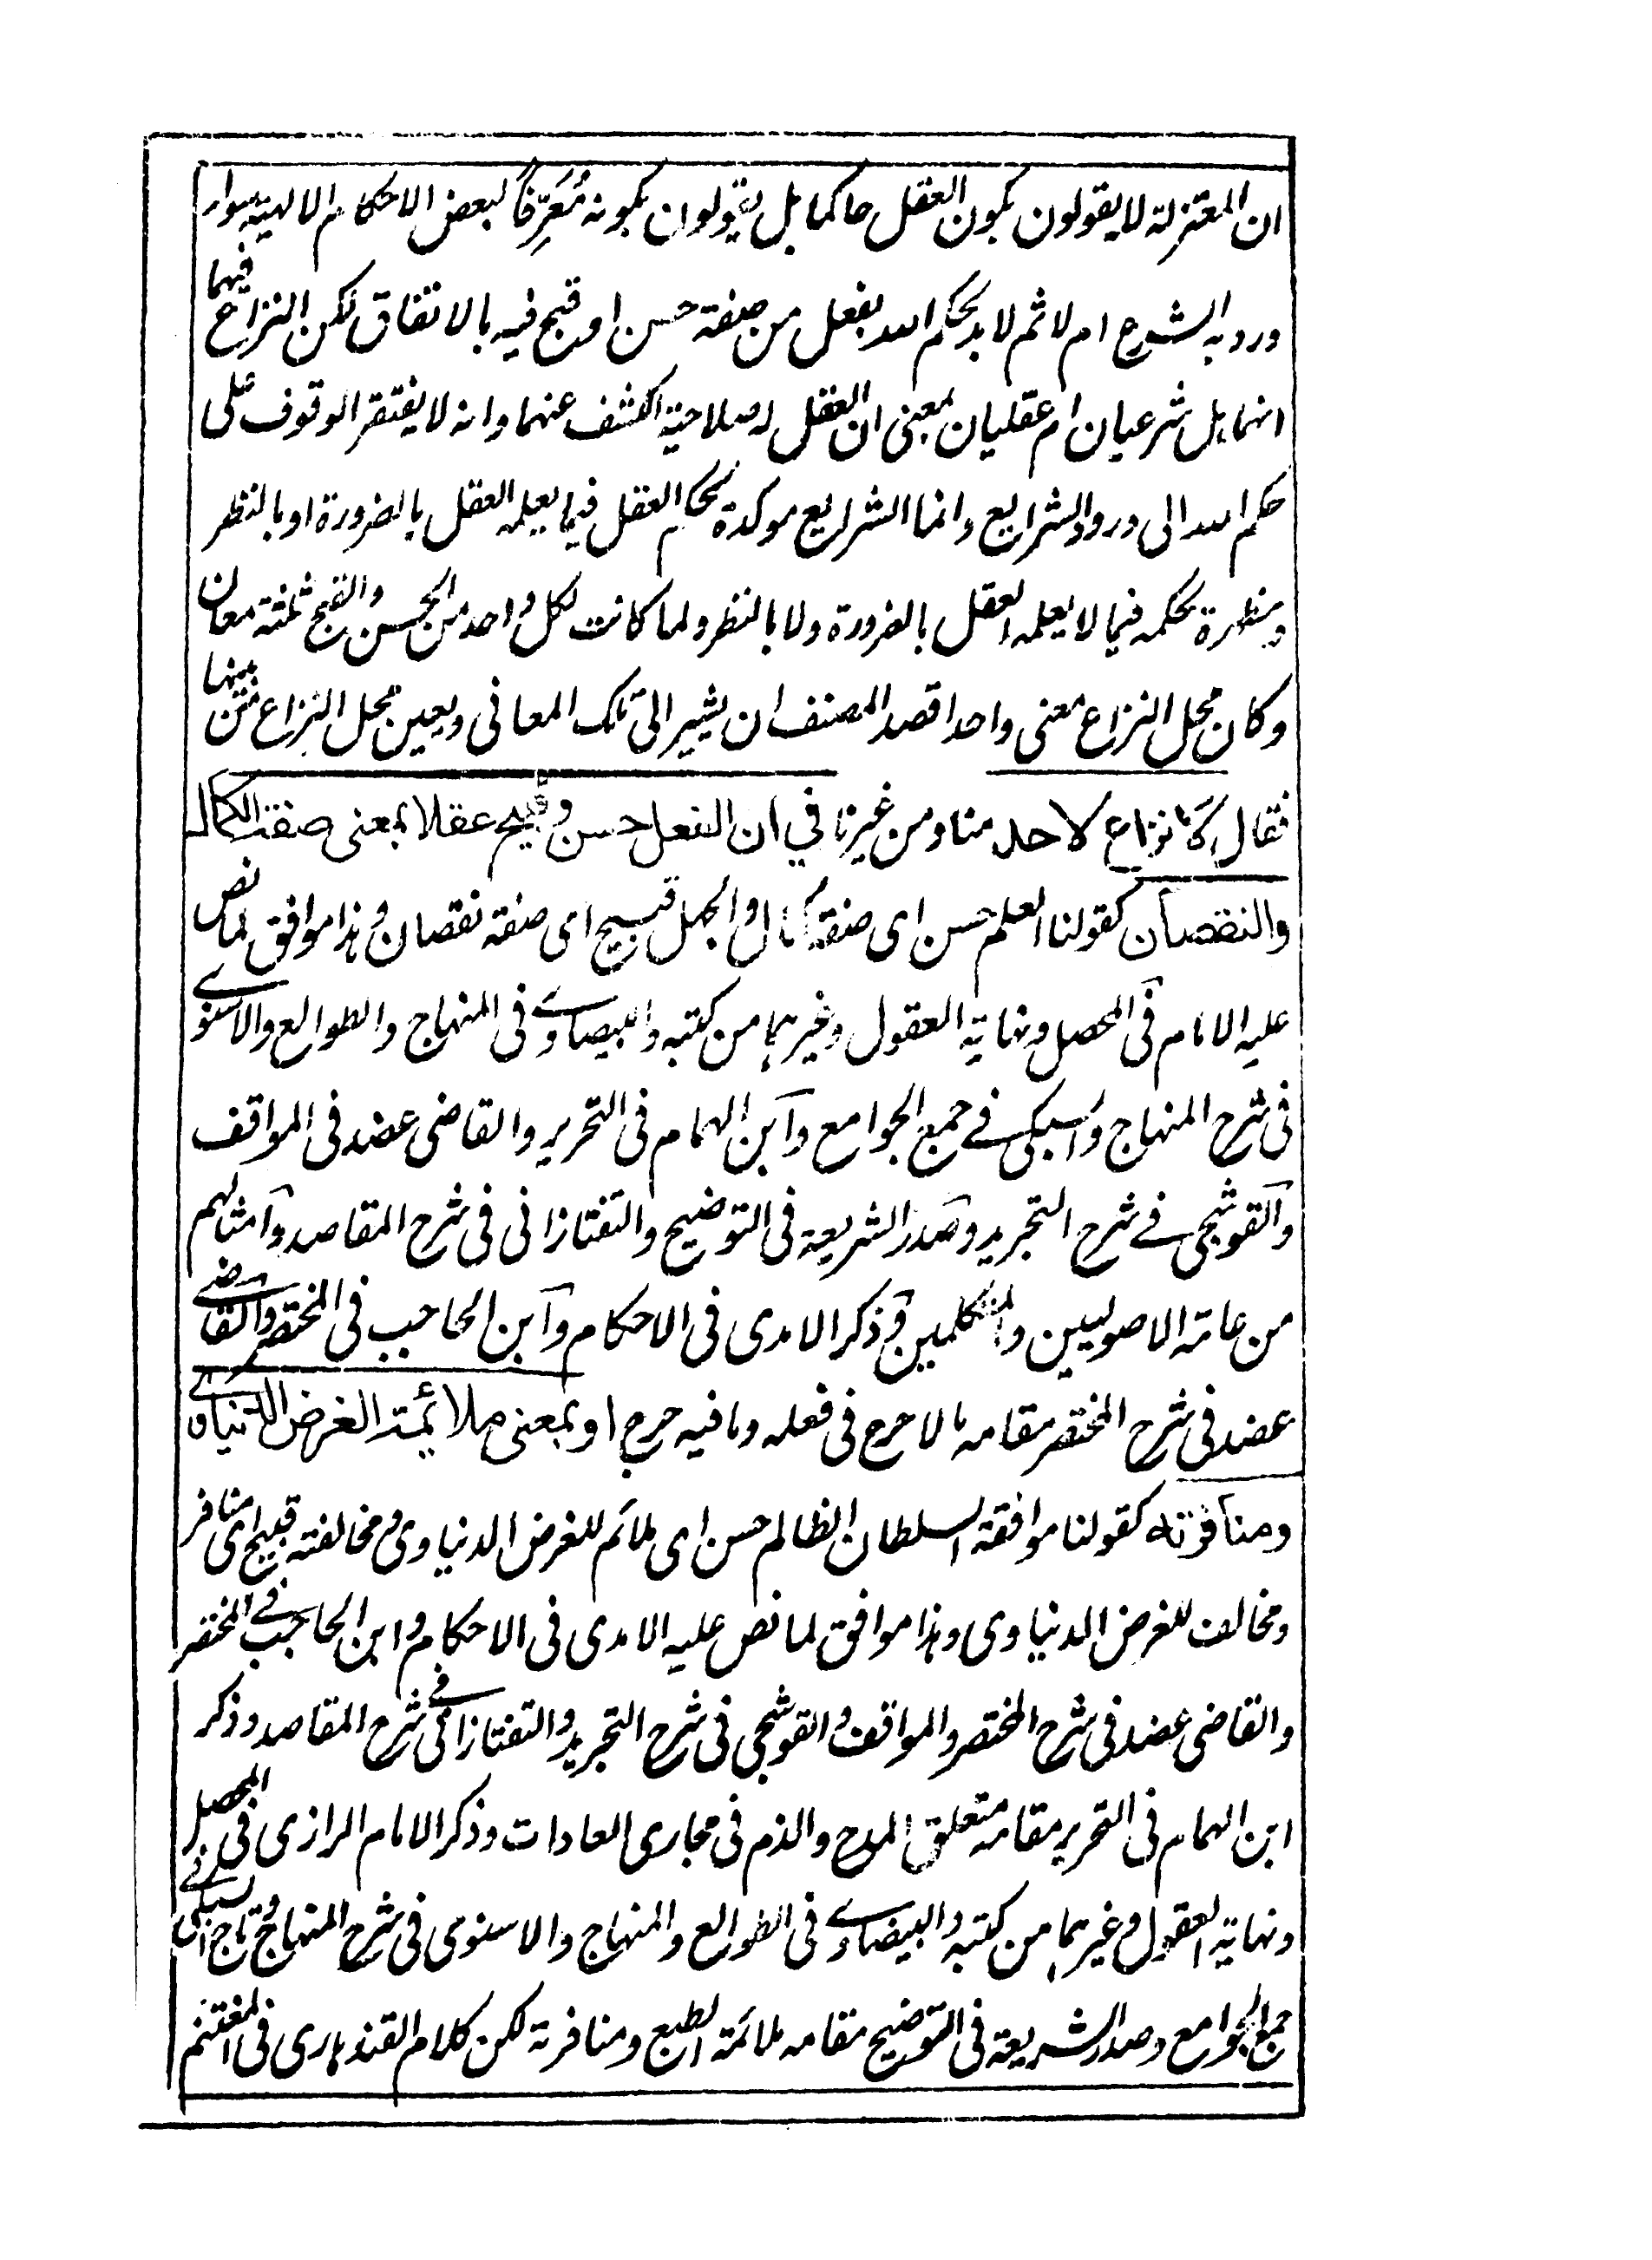 ان المعتزلة لا يقولون بكون العقل حاكما بل يقولون بكونه مُعَرِّفاً لبعض الاحكام الالهية سواء
ورد به الشرع ام لا ثم لا بد لحكم الله بفعل من صفة حسن او قبح فيه بالاتفاق لكن النزاع فيهما
انهما هل شرعيان ام عقليان بمعنى ان العقل له صلاحية الكشف عنهما وانه لا يفتقر الوقوف على
حكم الله الى ورود الشرايع وانما الشرايع موكدة لحكم العقل فيما يعلمه العقل بالضرورة او بالنظر
ومظهرة لحكمه فيما لا يعلمه العقل بالضرورة ولا بالنظر ولما كانت لكل واحد من الحسن والقبح ثلثة معان
وكان محل النزاع معنى واحدا قصد المصنف ان يشير الى تلك المعانى ويعين محل النزاع من بينها
فقال لا نزاع لاحد منا ومن غيرنا في ان الفعل حسن وقبيح عقلا بمعنى صفة الكمال
والنقصان كقولنا العلم حسن اى صفة كمال والجهل قبيح اى صفة نقصان وهذا موافق لما نص
عليه الامام فى المحصل ونهاية العقول وغيرهما من كتبه والبيضاوے فى المنهاج والطوالع والاسنوے
فى شرح المنهاج والسبكى فے جمع الجوامع وابن الهمام فى التحرير والقاضى عضد فى المواقف
والقوشجى فے شرح التجريد وصدر الشريعة فى التوضيح والتفتازانى فى شرح المقاصد وامثالهم
من عامة الاصوليين والمتكلمين وذكر الامدى فى الاحكام وابن الحاجب فى المختصر والقاضے
عضد فى شرح المختصر مقامه ما لا حرج فى فعله وما فيه حرج او بمعنى ملائمة الغرض الدنياوے
ومنافرته كقولنا موافقة السلطان الظالم حسن اى ملائم للغرض الدنياوى ومخالفته قبيح اى منافر
ومخالف للغرض الدنياوى وهذا موافق لما نص عليه الامدى فى الاحكام وابن الحاجب فے المختصر
والقاضى عضد فى شرح المختصر والمواقف والقوشجى فى شرح التجريد والتفتازانى فے شرح المقاصد وذكر
ابن الهمام فى التحرير مقامه متعلق المدح والذم فى مجارى العادات وذكر الامام الرازى فى المحصل
ونهاية العقول وغيرهما من كتبه والبيضاوے فى الطوالع والمنهاج والاسنوى فى شرح المنهاج وتاج السبكى فے
جمع الجوامع وصدر الشريعة فى التوضيح مقامه ملائمة الطبع ومنافرته لكن كلام القندهارى فى المغتنم